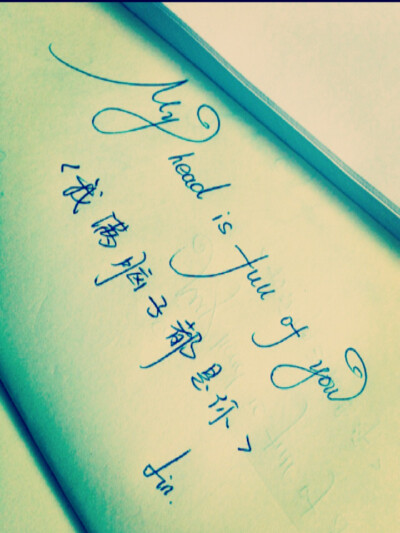 My head is full of you
<我满脑子都是你>
fin.